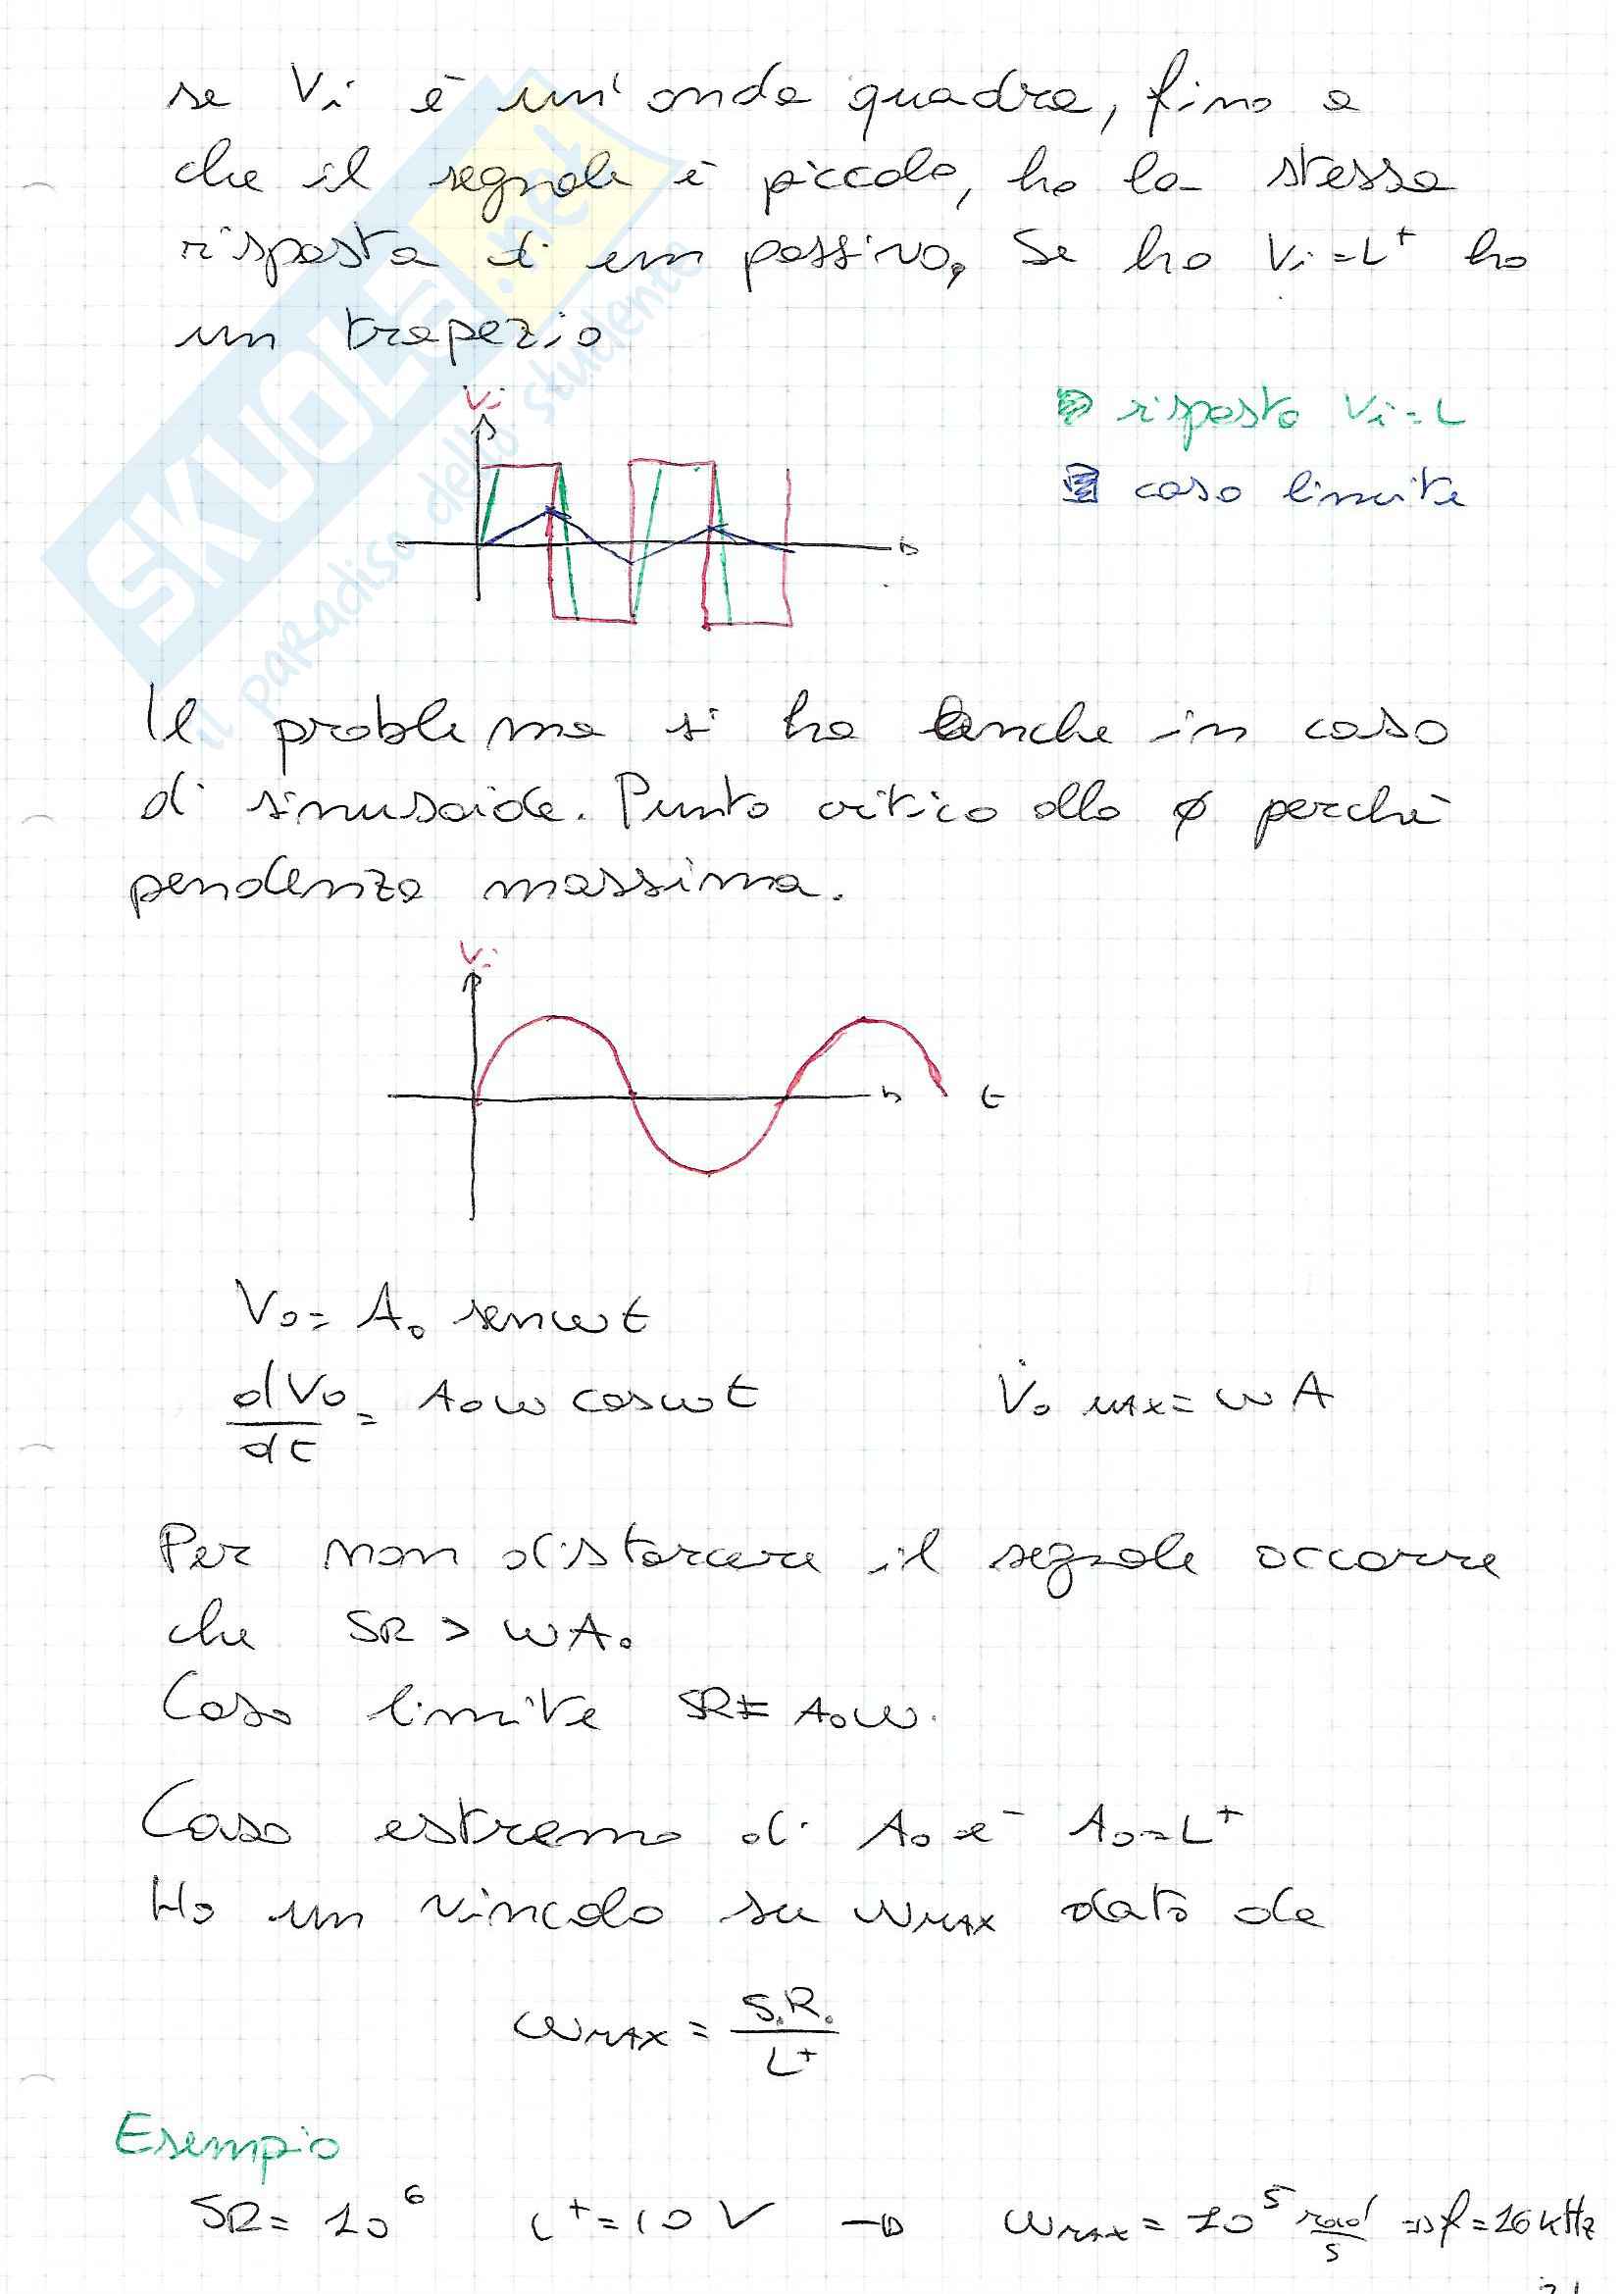 se Vi è un'onda quadra, fino a
che il segnale è piccolo, ho la stessa
risposta di un passivo. Se ho Vi=L⁺ ho
un trapezio
Vi
risposta Vi=L
caso limite
SKUOLA.net
il paradiso dello studente
Il problema si ha anche in caso
di sinusoide. Punto critico allo ø perchè
pendenza massima.
Vi
t
Vo = Ao senωt
dVo/dt = Aoω cosωt V̇o MAX = ωA
Per non distorcere il segnale occorre
che SR > ωAo
Caso limite SR = Aoω.
Caso estremo di Ao è Ao=L⁺
Ho un vincolo su ωMAX dato da
ωMAX = S.R./L⁺
Esempio
SR = 10⁶ L⁺=10V → ωMAX = 10⁵ rad/s ⇒ f = 16 kHz